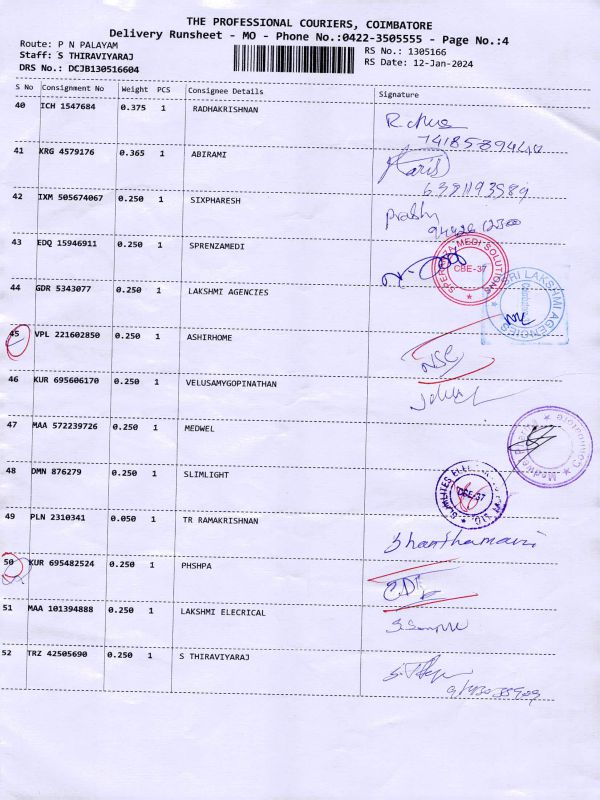 THE PROFESSIONAL COURIERS, COIMBATORE
Delivery Runsheet - MO - Phone No.:0422-3505555 - Page No.:4
Route: P N PALAYAM
Staff: S THIRAVIYARAJ
DRS No.: DCJB130516604
RS No.: 1305166
RS Date: 12-Jan-2024
S No Consignment No Weight PCS Consignee Details Signature
40 ICH 1547684 0.375 1 RADHAKRISHNAN
41 KRG 4579176 0.365 1 ABIRAMI
42 IXM 505674067 0.250 1 SIXPHARESH
Prabhu
43 EDQ 15946911 0.250 1 SPRENZAMEDI
CBE-37
44 GDR 5343077 0.250 1 LAKSHMI AGENCIES
SRI LAKSHMI AGENCIES
45 VPL 221602850 0.250 1 ASHIRHOME
NSC
46 KUR 695606170 0.250 1 VELUSAMYGOPINATHAN
47 MAA 572239726 0.250 1 MEDWEL
Coimbatore
48 DMN 876279 0.250 1 SLIMLIGHT
CBE-37
49 PLN 2310341 0.050 1 TR RAMAKRISHNAN
50 KUR 695482524 0.250 1 PHSHPA
51 MAA 101394888 0.250 1 LAKSHMI ELECRICAL
52 TRZ 42505690 0.250 1 S THIRAVIYARAJ